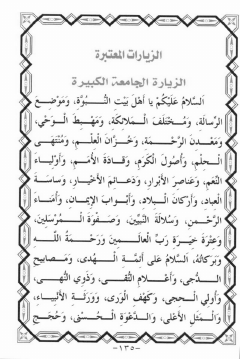 الزيارات المعتبرة
الزيارة الجامعة الكبيرة
اَلسَّلامُ عَلَيْكُمْ يا اَهْلَ بَيْتِ النُّبُوَّةِ، وَمَوْضِعَ
الرِّسالَةِ، وَمُخْتَلَفَ الْمَلائِكَةِ، وَمَهْبِطَ الْوَحْيِ،
وَمَعْدِنَ الرَّحْمَةِ، وَخُزّانَ الْعِلْمِ، وَمُنْتَهَى
الْحِلْمِ، وَاُصُولَ الْكَرَمِ، وَقادَةَ الْاُمَمِ، وَاَوْلِياءَ
النِّعَمِ، وَعَناصِرَ الْاَبْرارِ، وَدَعائِمَ الْاَخْيارِ، وَساسَةَ
الْعِبادِ، وَاَرْكانَ الْبِلادِ، وَاَبْوابَ الْايمانِ، وَاُمَناءَ
الرَّحْمنِ، وَسُلالَةَ النَّبِيّينَ، وَصَفْوَةَ الْمُرْسَلينَ،
وَعِتْرَةَ خِيَرَةِ رَبِّ الْعالَمينَ وَرَحْمَةُ اللَّهِ
وَبَرَكاتُهُ، اَلسَّلامُ عَلى اَئِمَّةِ الْهُدى، وَمَصابيحِ
الدُّجى، وَاَعْلامِ التُّقى، وَذَوِي النُّهى،
وَاُولِي الْحِجى، وَكَهْفِ الْوَرى، وَوَرَثَةِ الْاَنْبِياءِ،
وَالْمَثَلِ الْاَعْلى، وَالدَّعْوَةِ الْحُسْنى، وَحُجَجِ
-١٣٥-